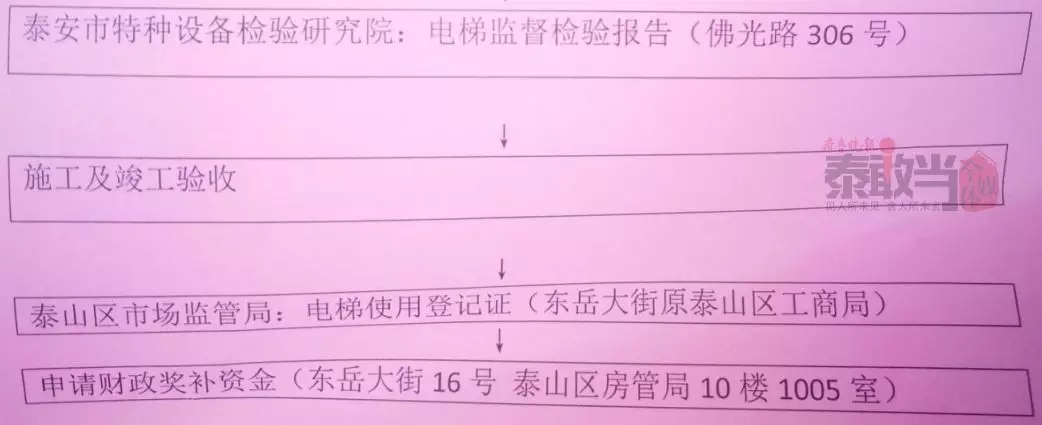 泰安市特种设备检验研究院：电梯监督检验报告（佛光路 306 号）
齐鲁晚报
施工及竣工验收
泰敢当
全媒体
见人所未见 言人所未言
泰山区市场监管局：电梯使用登记证（东岳大街原泰山区工商局）
申请财政奖补资金（东岳大街 16 号 泰山区房管局 10 楼 1005 室）